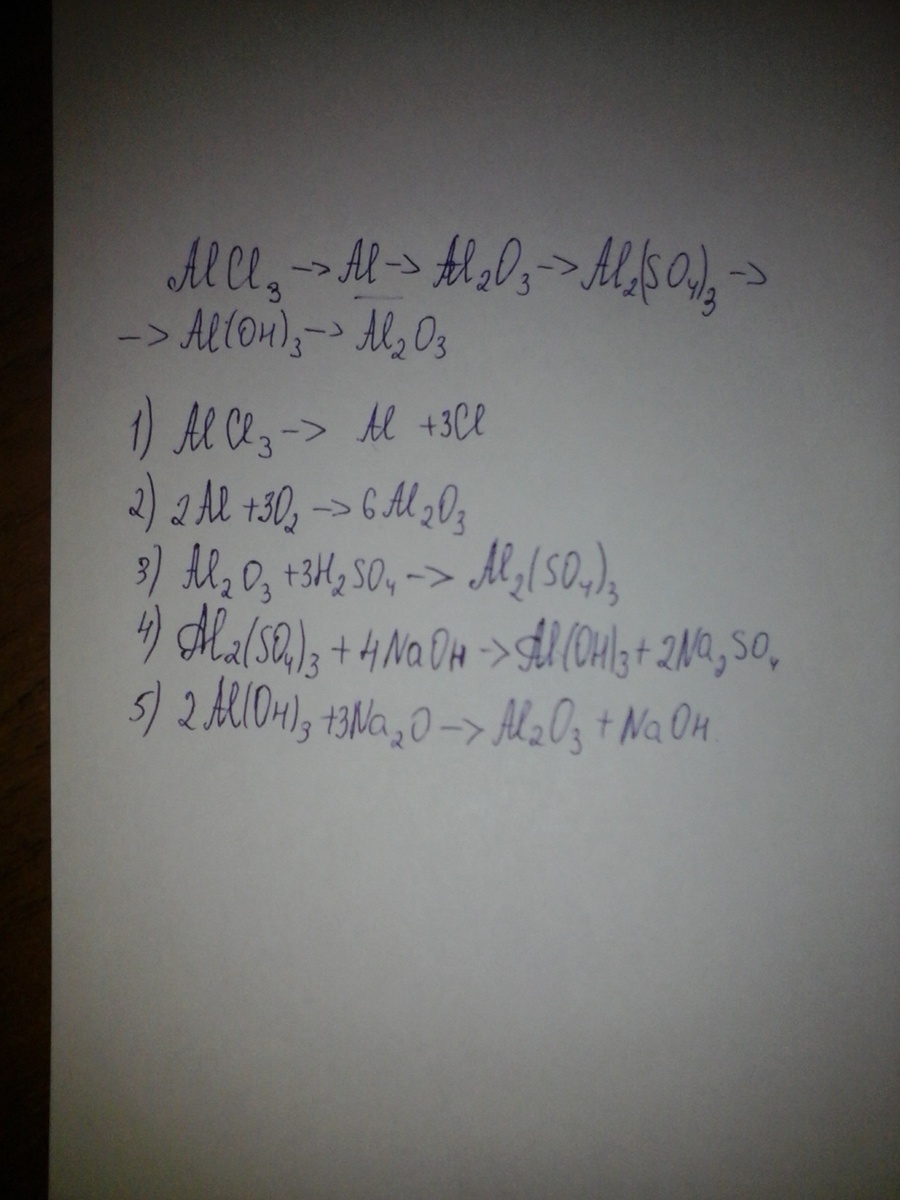 AlCl₃ -> Al -> Al₂O₃ -> Al₂(SO₄)₃ ->
-> Al(OH)₃ -> Al₂O₃
1) AlCl₃ -> Al +3Cl
2) 2Al +3O₂ -> 6Al₂O₃
3) Al₂O₃ +3H₂SO₄ -> Al₂(SO₄)₃
4) Al₂(SO₄)₃ + 4NaOH -> Al(OH)₃ + 2Na₂SO₄
5) 2Al(OH)₃ +3Na₂O -> Al₂O₃ + NaOH